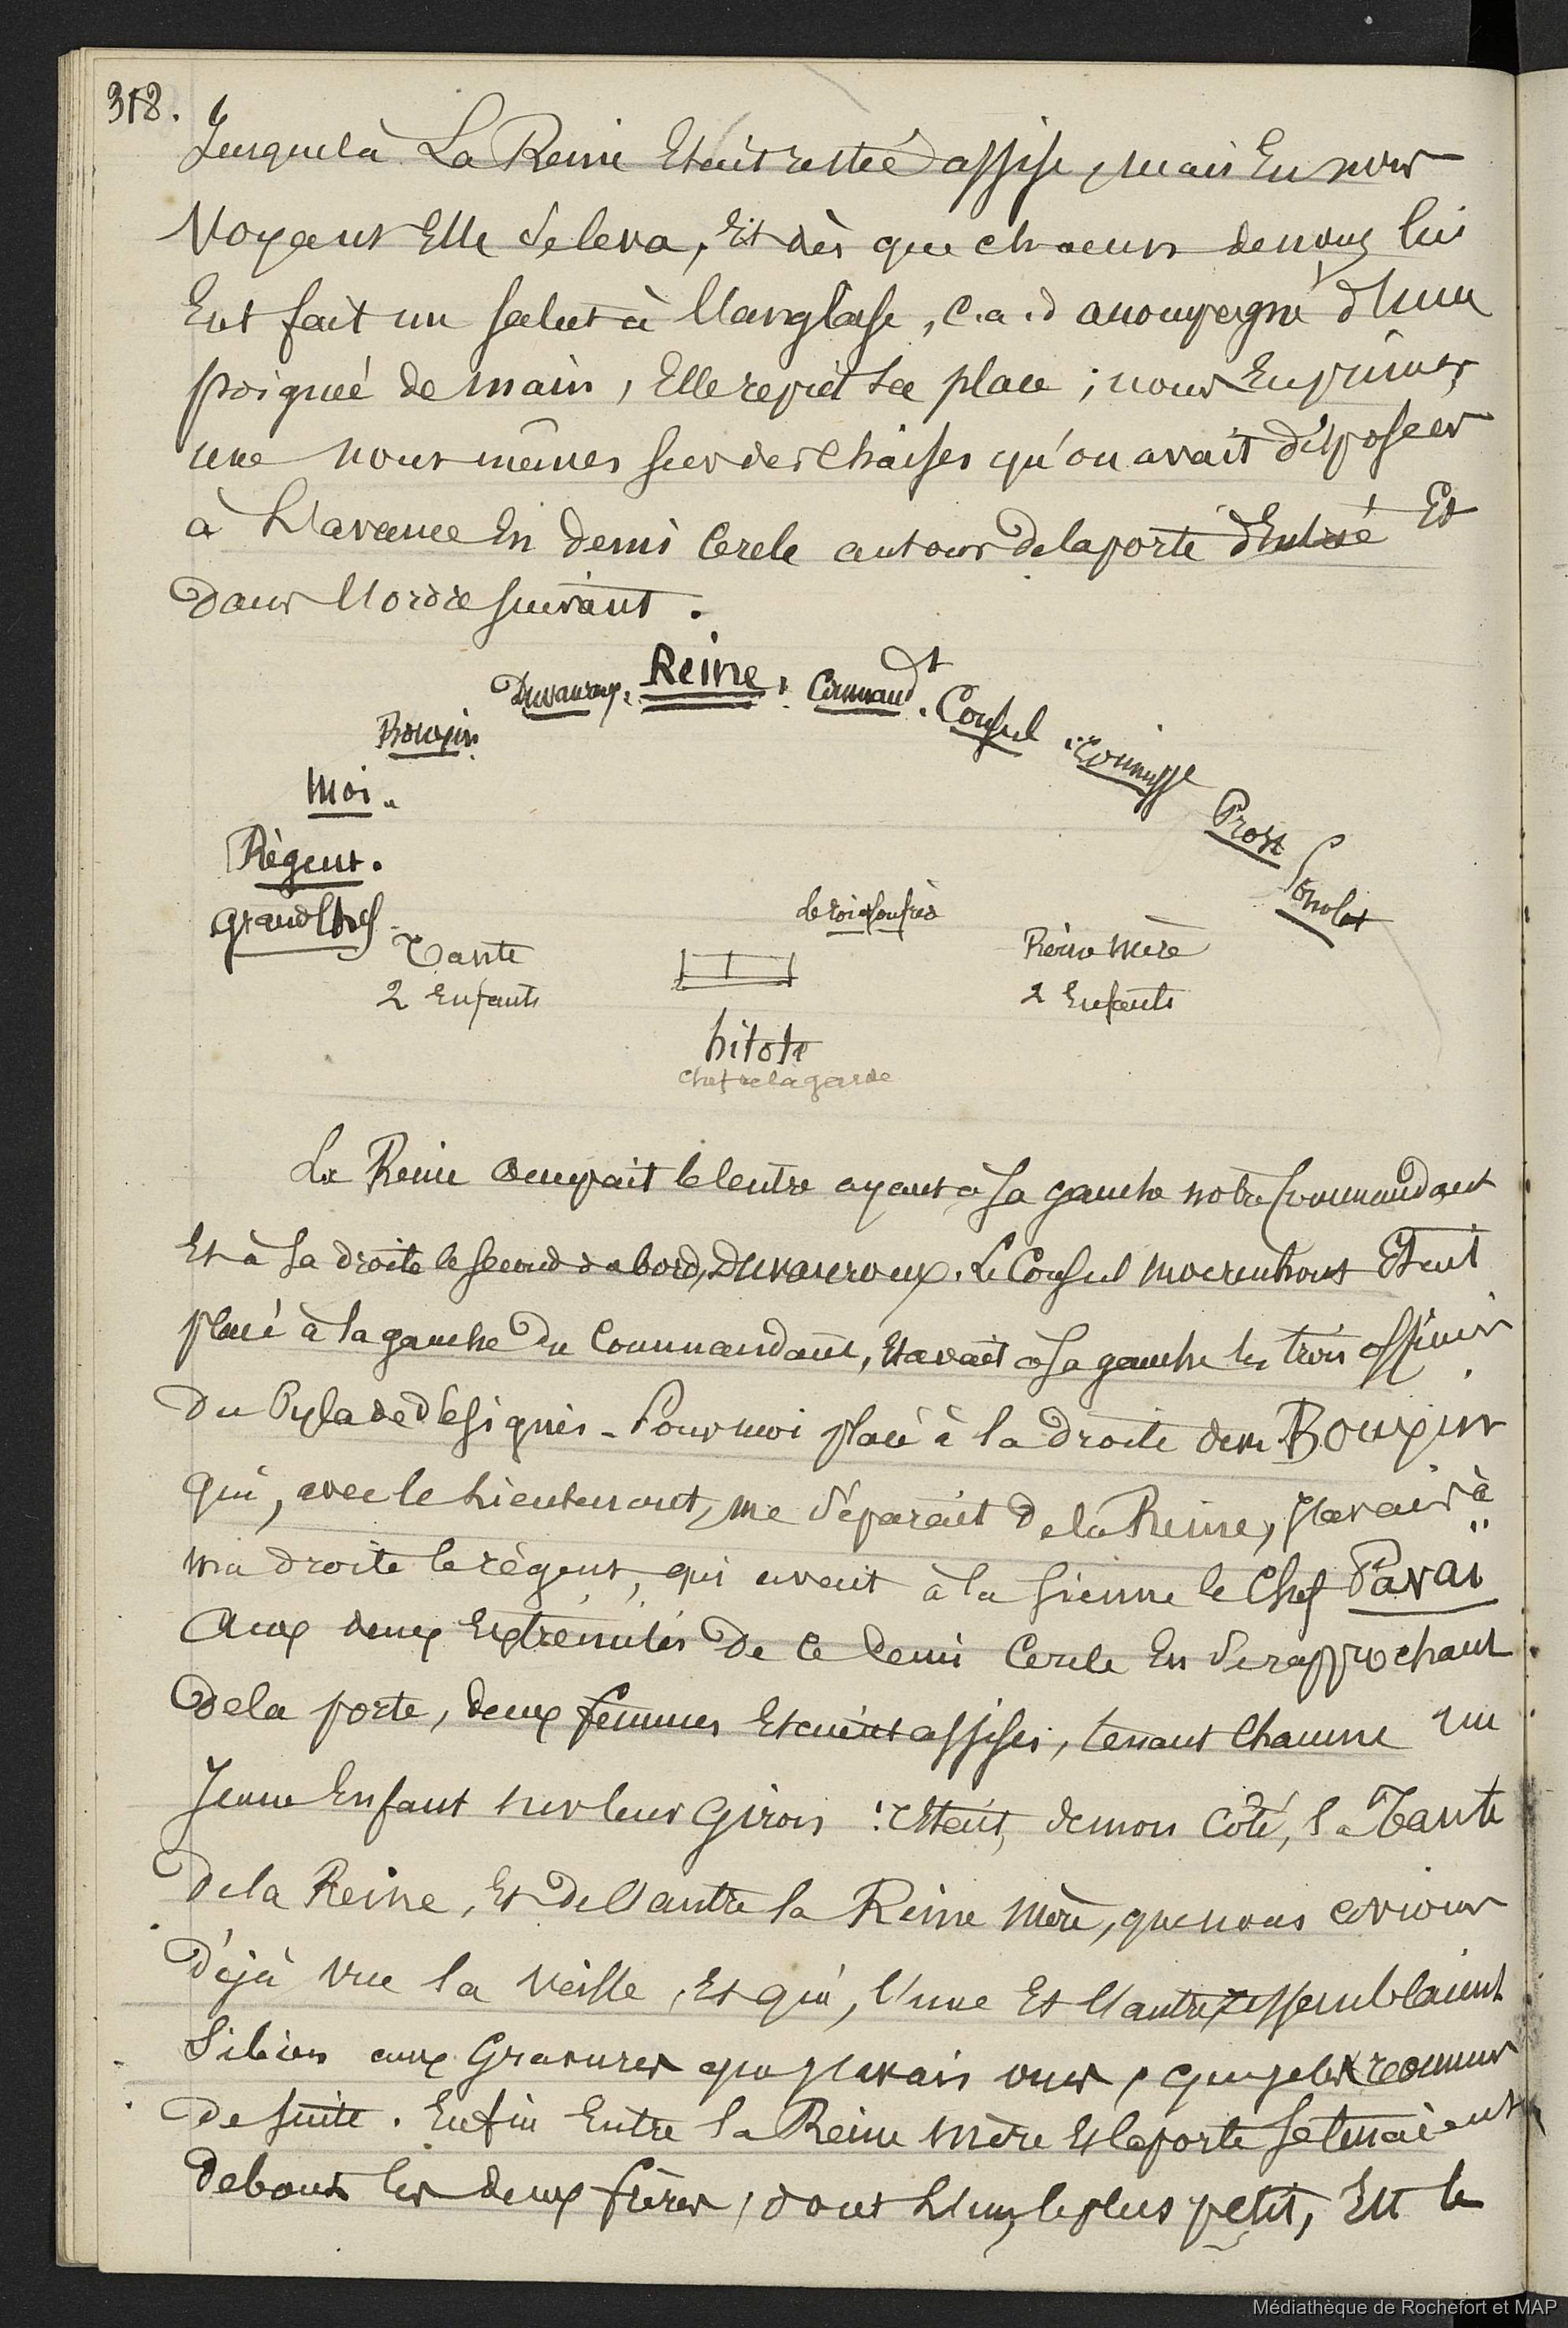 318.
Jusque là La Reine était restée assise, mais En nous
Voyant Elle se leva, Et dès que chacun de nous lui
Eut fait un salut à l'anglaise, c.a.d accompagné d'une
poignée de main, Elle reprit sa place ; nous En primes
une nous mêmes sur des chaises qu'on avait disposées
à L'avance En demi Cercle autour de la porte d'Entrée Et
dans l'ordre suivant.
Duvauroux. Reine. Command.dt Consul. Commisse Prost
Bouxin.
Moi.
Régent.
grand Chef
Tante
2 Enfants
le roi & son frère
Reine mère
2 Enfants
hitote
chef de la garde
La Reine occupait le Centre ayant à sa gauche notre Commandant
Et à sa droite le second du bord, Duvauroux. Le Consul Moerenhout Etait
placé à la gauche du Commandant, Et avait à sa gauche les trois officiers
du Pylade désignés - Pour moi placé à la droite de Mr Bouxin
qui, avec le Lieutenant, me séparait de la Reine, j'avais à
ma droite le régent, qui avait à la sienne le Chef Paraï
Aux deux Extrémités de ce demi Cercle En se rapprochant
de la porte, deux femmes Etaient assises, tenant Chacune un
Jeune Enfant sur leur Giron : c'Etait, de mon Côté, la Tante
de la Reine, Et de l'autre la Reine Mère, que nous avions
déjà vue la veille, Et qui, l'une Et l'autre ressemblaient
si bien aux Gravures que j'avais vues, que je les reconnus
de suite. Enfin Entre la Reine Mère Et la porte se tenaient
debout les deux frères, dont L'un, le plus petit, Est le
Médiathèque de Rochefort et MAP